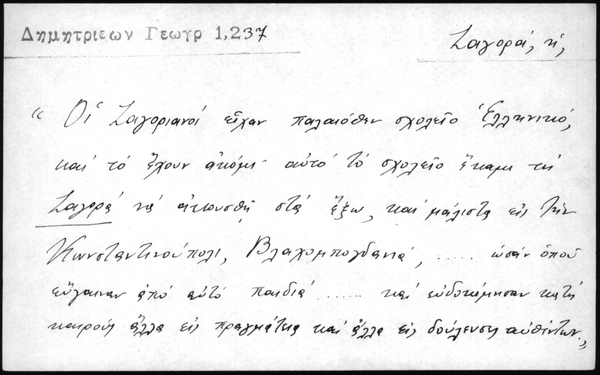 Δημητριεων Γεωγρ 1,237
Ζαγορά, ἡ,
“ Οἱ Ζαγοριανοί εἶχαν παλαιόθεν σχολεῖο Ἑλληνικό,
καί τό ἔχουν ἀκόμι· αὐτό τό σχολεῖο ἔκαμε τή
Ζαγορά νά ἀκουσθῆ στά ἔξω, καί μάλιστα εἰς τήν
Κωνσταντινούπολι, Βλαχομπογδανιά, ..... ὡσάν ὁπού
εὔγαιναν ἀπό αὐτό παιδιά ...... καί εὐδοκίμησαν κατά
καιρούς ἄλλα εἰς πραγμάτειες καί ἄλλα εἰς δούλευσες αὐθέντων„